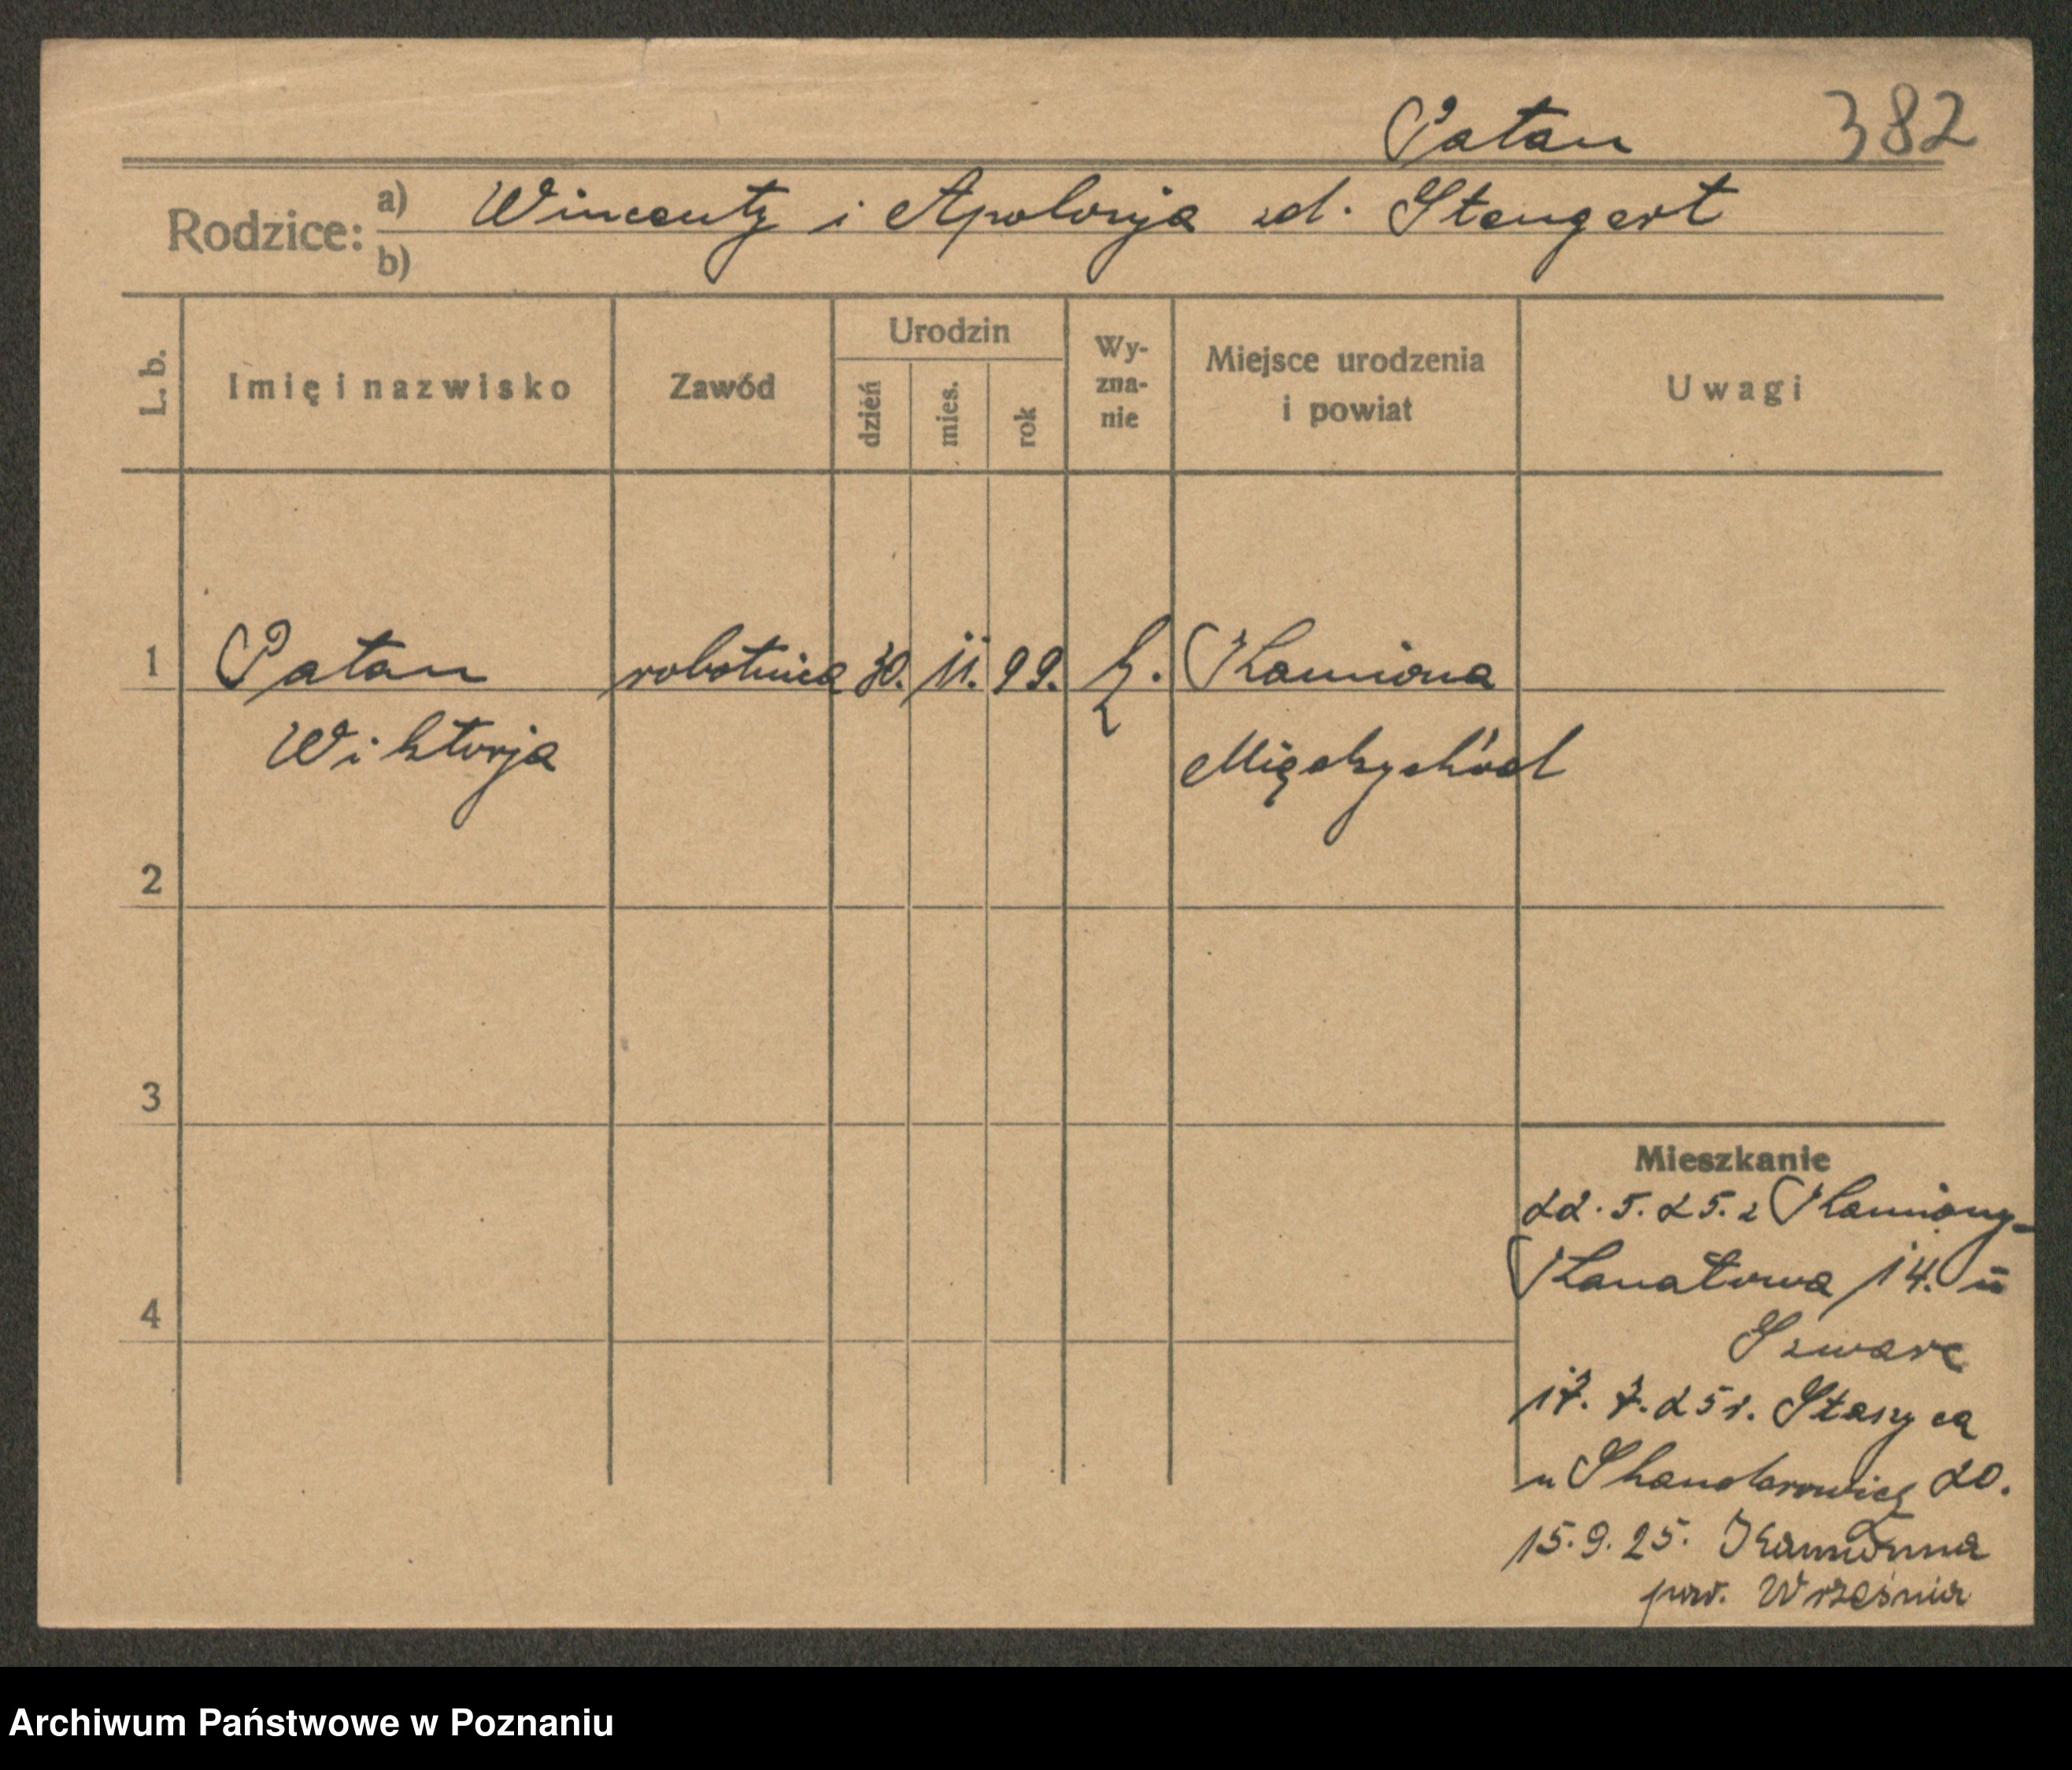 Patan 382
Rodzice: a) Wincenty i Apolonja zd. Stengert
b)
L. b. Imię i nazwisko Zawód Urodzin dzień mies. rok Wy-zna-nie Miejsce urodzenia i powiat Uwagi
1 Patan robotnica 30. 11. 99. k. Kamiona
Wiktorja Międzychód
2
3
Mieszkanie
22. 5. 25. z Kamiony-
Kanatowa 14. u
4
Szwarc
17. 7. 25 r. Staszyca
u 20.
15. 9. 25. Kamionna
pow. Września
Archiwum Państwowe w Poznaniu